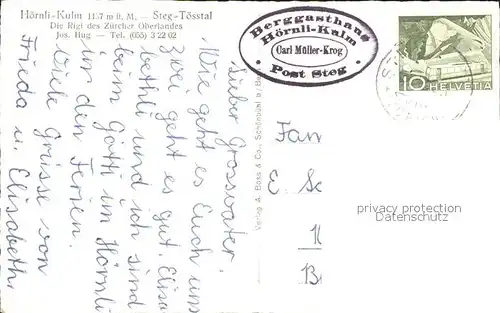 Hörnli-Kulm 1137 m ü. M. — Steg-Tösstal
Die Rigi des Zürcher Oberlandes
Jos. Hug — Tel. (055) 3 22 02
Berggasthaus
Hörnli-Kulm
Carl Müller-Krog
• Post Steg •
10 HELVETIA
Lieber Grossvater.
Wie geht es Euch uns
zwei geht es gut. Elisa
bethli und ich sind
beim Götti im Hörnli
in den Ferien.
Viele Grüsse von
Frieda u. Elisabeth.
Verlag A. Boss & Co., Schönbühl b/
Fam
E. Sc
B
privacy protection
Datenschutz